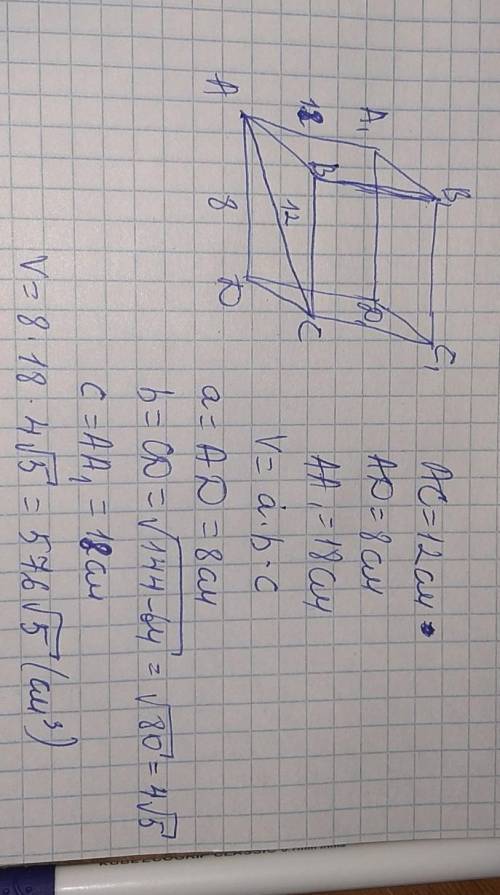 A₁
B₁
18
B
C₁
D₁
A
12
8
D
C
AC = 12 см
AD = 8 см
AA₁ = 18 см
V = a · b · c
a = AD = 8 см
b = CD = √144-64 = √80 = 4√5
c = AA₁ = 18 см
V = 8 · 18 · 4√5 = 576√5 (см³)